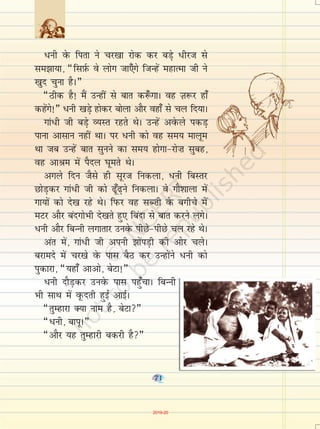 धनी के पिता ने चरखा रोक कर बड़े धीरज से
समझाया, “सिर्फ़ वे लोग जाएँगे जिन्हें महात्मा जी ने
खुद चुना है।”
“ठीक है! मैं उन्हीं से बात करूँगा। वह ज़रूर हाँ
कहेंगे!” धनी खड़े होकर बोला और वहाँ से चल दिया।
गांधी जी बड़े व्यस्त रहते थे। उन्हें अकेले पकड़
पाना आसान नहीं था। पर धनी को वह समय मालूम
था जब उन्हें बात सुनने का समय होगा-रोज़ सुबह,
वह आश्रम में पैदल घूमते थे।
अगले दिन जैसे ही सूरज निकला, धनी बिस्तर
छोड़कर गांधी जी को ढूँढ़ने निकला। वे गौशाला में
गायों को देख रहे थे। फिर वह सब्ज़ी के बगीचे में
मटर और बंदगोभी देखते हुए बिंदा से बात करने लगे।
धनी और बिन्नी लगातार उनके पीछे-पीछे चल रहे थे।
अंत में, गांधी जी अपनी झोंपड़ी की ओर चले।
बरामदे में चरखे के पास बैठ कर उन्होंने धनी को
पुकारा, “यहाँ आओ, बेटा!”
धनी दौड़कर उनके पास पहुँचा। बिन्नी
भी साथ में कूदती हुई आई।
“तुम्हारा क्या नाम है, बेटा?”
“धनी, बापू।”
“और यह तुम्हारी बकरी है?”
71
2019-20